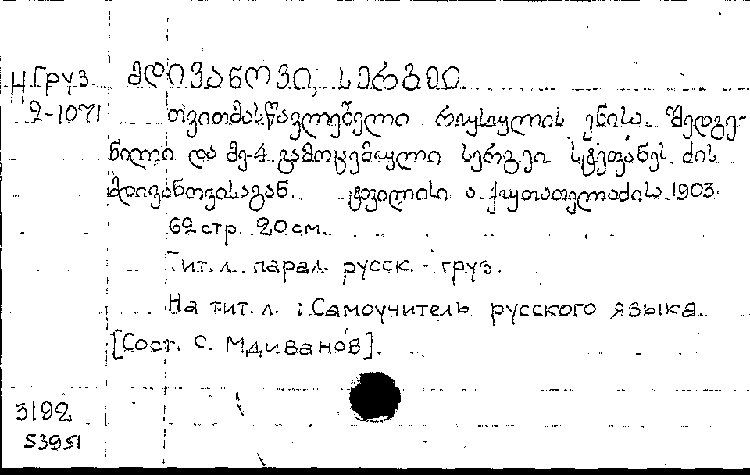 Н.Груз მდივანოვი, სერგეი
2-1071 თვითმასწავლებელი რუსულის ენისა. შედგე-
ნილი და მე-4 გამოცემული სერგეი სტეფანეს ძის
მდივანოვისაგან. ტფილისი ა. ქუთათელაძისა 1903.
62 стр. 20 см.
Тит. л. парал. русск. - груз.
На тит. л.: Самоучитель русского языка.
[Сост. С. Мдиванов].
3192
53951